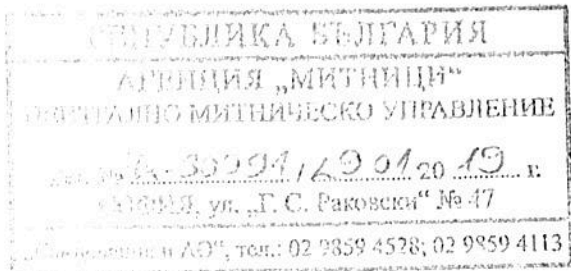 РЕПУБЛИКА БЪЛГАРИЯ
АГЕНЦИЯ „МИТНИЦИ“
ЦЕНТРАЛНО МИТНИЧЕСКО УПРАВЛЕНИЕ
20 19 г.
СОФИЯ, ул. „Г. С. Раковски“ № 47
АО“, тел.: 02 9859 4528; 02 9859 4113